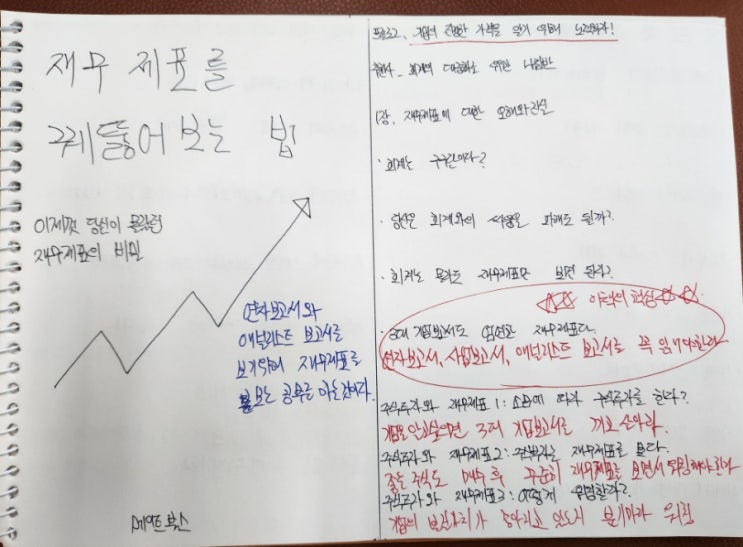 재무 제표를
꿰뚫어 보는 법
이제껏 당신이 몰랐던
재무제표의 비밀
연차보고서와
애널리스트 보고서를
보기위해 재무제표를
보는 공부를 하는것이다.
메이트북스
프롤로그, 기업의 진정한 가치를 알기 위해 노력하라!
회계의 대중화를 위한 나침반
1장, 재무제표에 대한 오해와 진실
· 회계는 구라이다?
· 당신은 회계와의 싸움을 피해도 될까?
· 회계는 몰라도 재무제표만 보면 된다?
☆☆ 이책의 핵심 ☆☆
· 3대 기업보고서도 엄연한 재무제표다.
연차보고서, 사업보고서, 애널리스트 보고서를 꼭 읽어야한다
주식투자와 재무제표 1: 소문에 따라 주식투자를 한다?
기업을 알고싶으면 3대 기업보고서를 끼고 살아라.
주식투자와 재무제표2: 주식부자는 재무제표를 본다.
좋은 주식도 매수 후 꾸준히 재무제표를 보면서 위험해야한다
주식투자와 재무제표3: 어떻게 위험할까?
기업의 분기마다